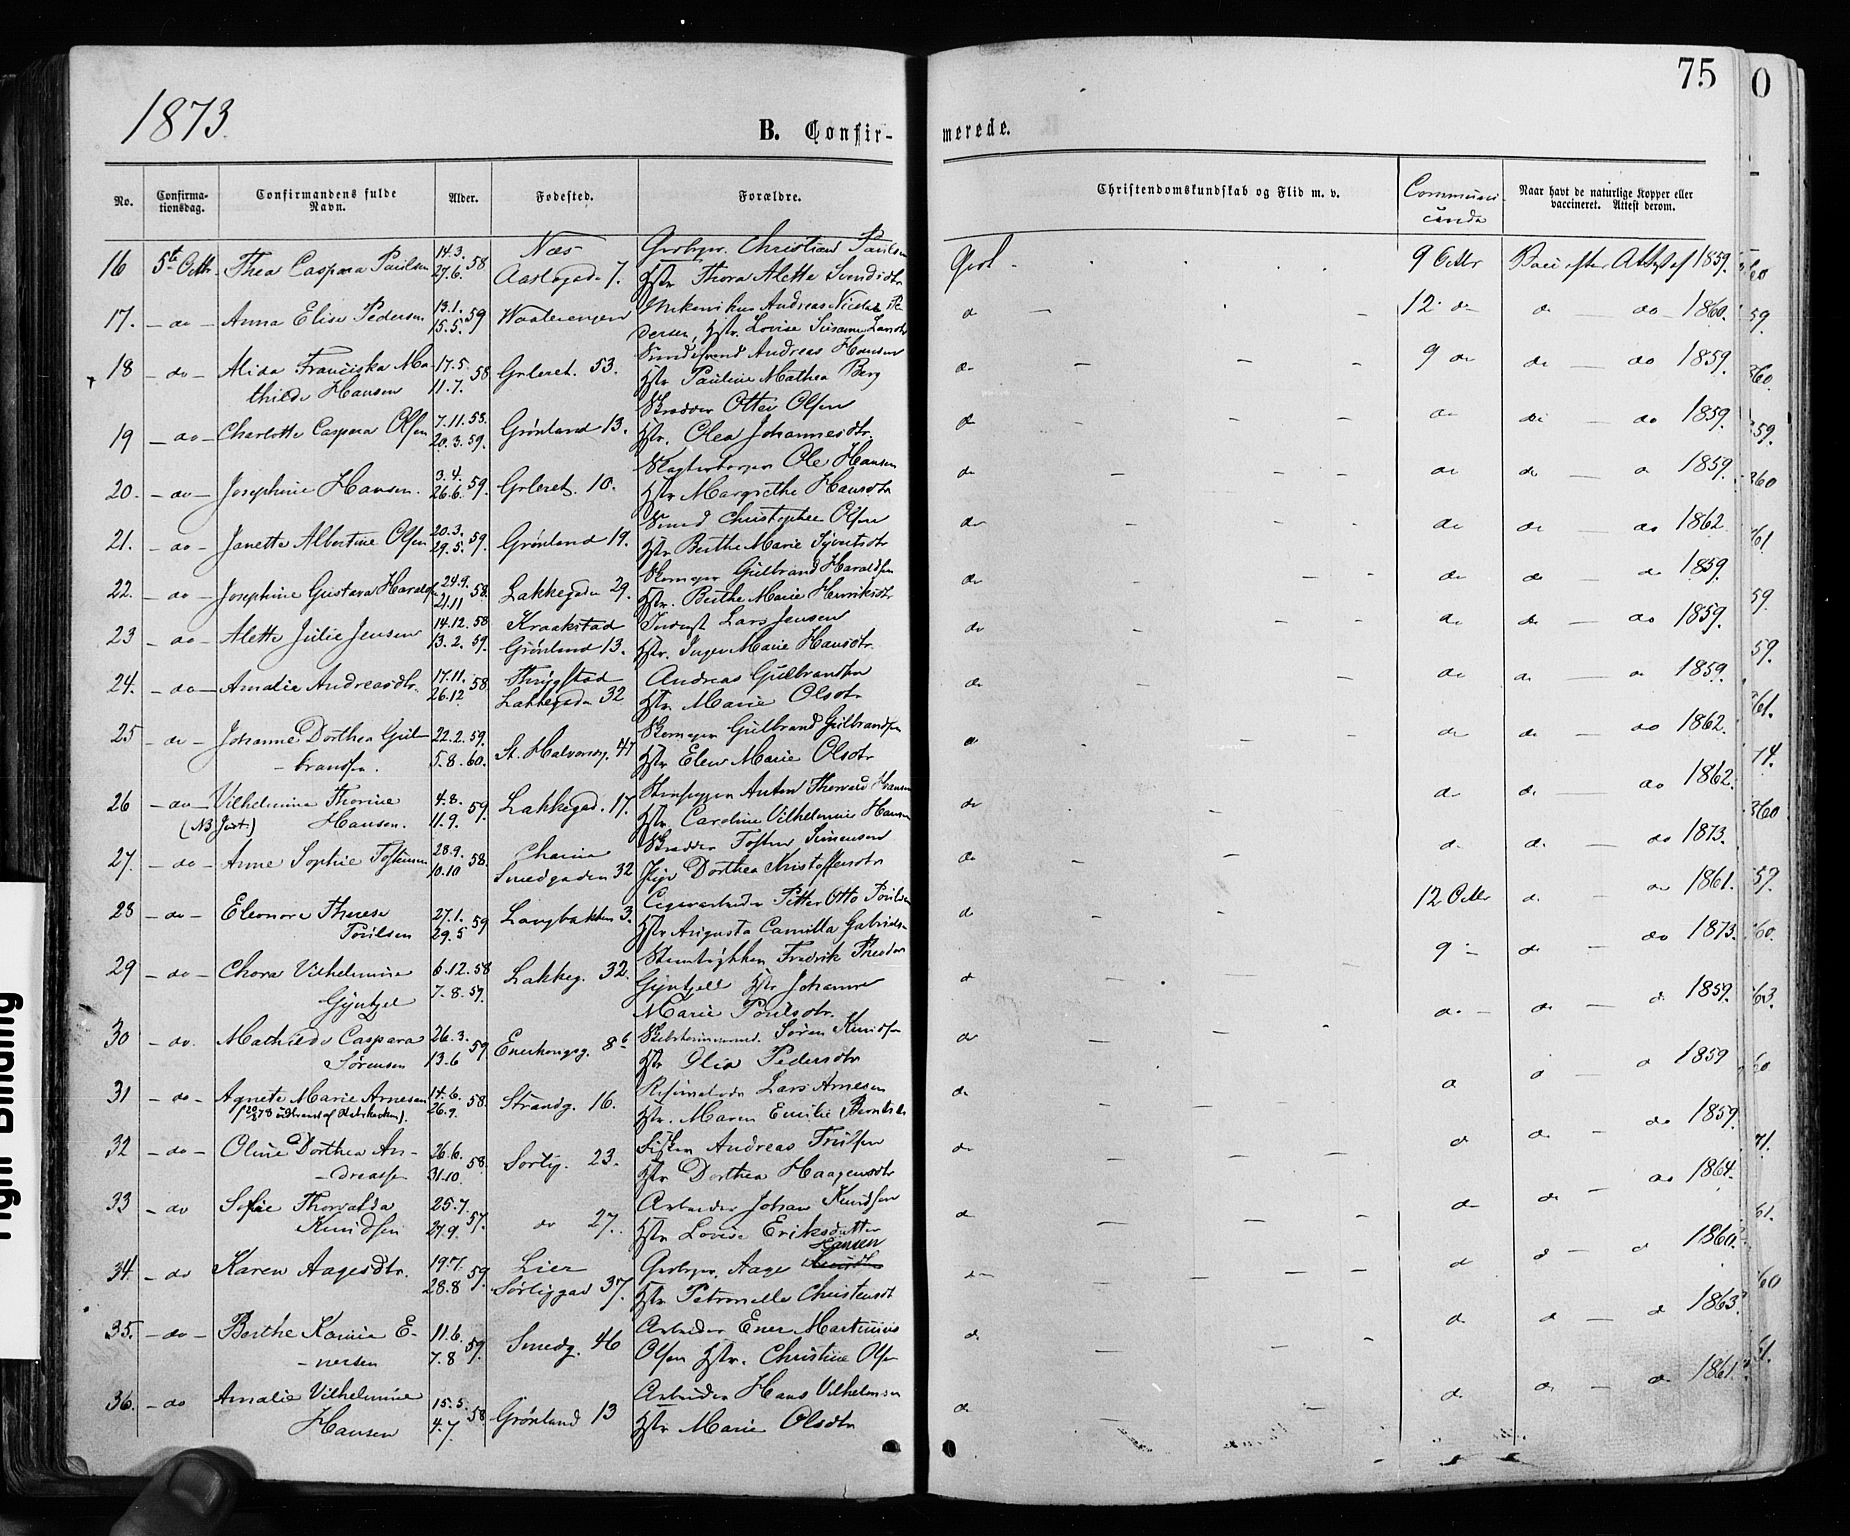 75
0
1873.
B. Confir-
merede.
No.
Confirma-
tionsdag.
Confirmandens fulde
Navn.
Alder.
Fødested.
Forældre.
Christendomskundskab og Flid m. v.
Communi-
Naar havt de naturlige Kopper eller
vaccineret. Attest derom.
16 5te Octbr. Thea Caspara Paulsen 14.3. 58 27.6. Næs Christian Paulsen
7. Hstr Thora Alette
9 Octbr 1859.
17. - do - Anna Elise Pedersen 13.1. 59 15.5. Waalerengen Andreas Nicolai Pe-
dersen, Hstr. Lovise Susanne
do 12 do do do 1860.
18 - do - Alida Franciska Ma- 17.5. 58 Grleret. 53. Andreas Hansen
thilde Hansen 11.7. Hstr Pauline Mathea Berg
do 9 do do do 1859.
19 - do - Charlotte Caspara Olsen 7.11.58. 20.3.59. Grønland 13. Skrædder Otter Olsen
Hstr. Olea Johannesdtr.
do do do do 1859.
20. - do - Josephine Hansen. 3.4. 59. 26.6. Grleret. 10. Ole Hansen
Hstr Margrethe Hansdtr
do do do do 1859.
21. - do - Janette Albertine Olsen 20.3. 59. 29.5. Grønland 19. Smed Christopher Olsen
Hstr Berthe Marie Syvertsdtr
do do do do 1862
22. - do - Josephine Gustava Haralds 24.9. 58. 21.11 Lakkegaden 29. Skomager Gulbrand Haraldsen
Hstr. Berthe Marie Henriksdtr
do do do do 1859.
23 - do - Alette Julie Jensen 14.12.58 Kraakstad Lars Jensen
13.2.59. Grønland 13. Hstr. Inger Marie Hansdtr.
do do do do 1859.
24. - do - Amalie Andreasdtr. 17.11. 58. Andreas Gulbrandsen
26.12 Lakkegaden 32 Hstr Marie Olsdtr
do do do do 1859.
25 - do - Johanne Dorthea Gul- 22.2.59. St. Halvardsg. 47 Skomager Gulbrand Gulbrandsen
bransen. 5.8.60. Hstr Elen Marie Olsdtr
do do do do 1862.
26 - do - Vilhelmine Thorine 4.8. 59. Lakkegad. 17. Anton Thorvald Hansen
(NB) Hansen. 11.9. Hstr. Caroline Vilhelmine Hansen
do do do do 1862.
27. - do - Anne Sophie 28.9. 58. Skrædder Simensen
10.10 Smedgaden 32 Dorthea Kristoffersdtr
do do do do 1873.
28 - do - Eleonora Therese 27.1. 59 Langbakken 3. Cigararbeider Petter Otto Poulsen
Poulsen 29.5 Hstr Augusta Camilla
do 12 Octbr do do 1861.
29 - do - Thora Vilhelmine 6.12.58 Lakkeg. 32. Fredrik Theodor
Gyntzel 7.8.59. Gyntzell Hstr Johanne
Marie Poulsdtr.
do 9 - do do 1873.
30 - do. Mathilde Caspara 26.3. 59. Enerhougsg. 8b Søren Knudsen
Sørensen 13.6 Hstr Olia Pedersdtr
do do do do 1859.
31 - do - Agnete Marie Arnesen 14.6. 58. Strandg. 16. Lars Arnesen
26.9. Hstr. Maren Emilie
do do do do 1859
32 - do - Oline Dorthea An- 26.6. 58. Sørlig. 23. Fisker Andreas Trulsen
dreassen 31.10. Hstr Dorthea Haagensdtr
do do do do 1859.
33 - do Sofie Thorvalda 25.7. 57. do 27. Arbeider Johan Knudsen
Knudsen 27.9. Hstr Lovise Eriksdatter
do do do do 1864.
34. - do Karen Aagesdtr. 19.7. 59. Lier Aage Hansen
28.8 Sørliggad 37. Hstr Petronelle Christensdt
do do do do 1860.
35. - do - Berthe Karine E- 11.6. 59. Smedg. 46 Arbeider Ener Martinius
nersen 7.8 Olsen Hstr. Christine Olsen
do do do do 1863.
36. - do Amalie Vilhelmine 15.5. 58. Grønland 13 Arbeider Hans Vilhelmsen
Hansen 4.7 Hstr Marie Olsdtr
do do do do 1861.